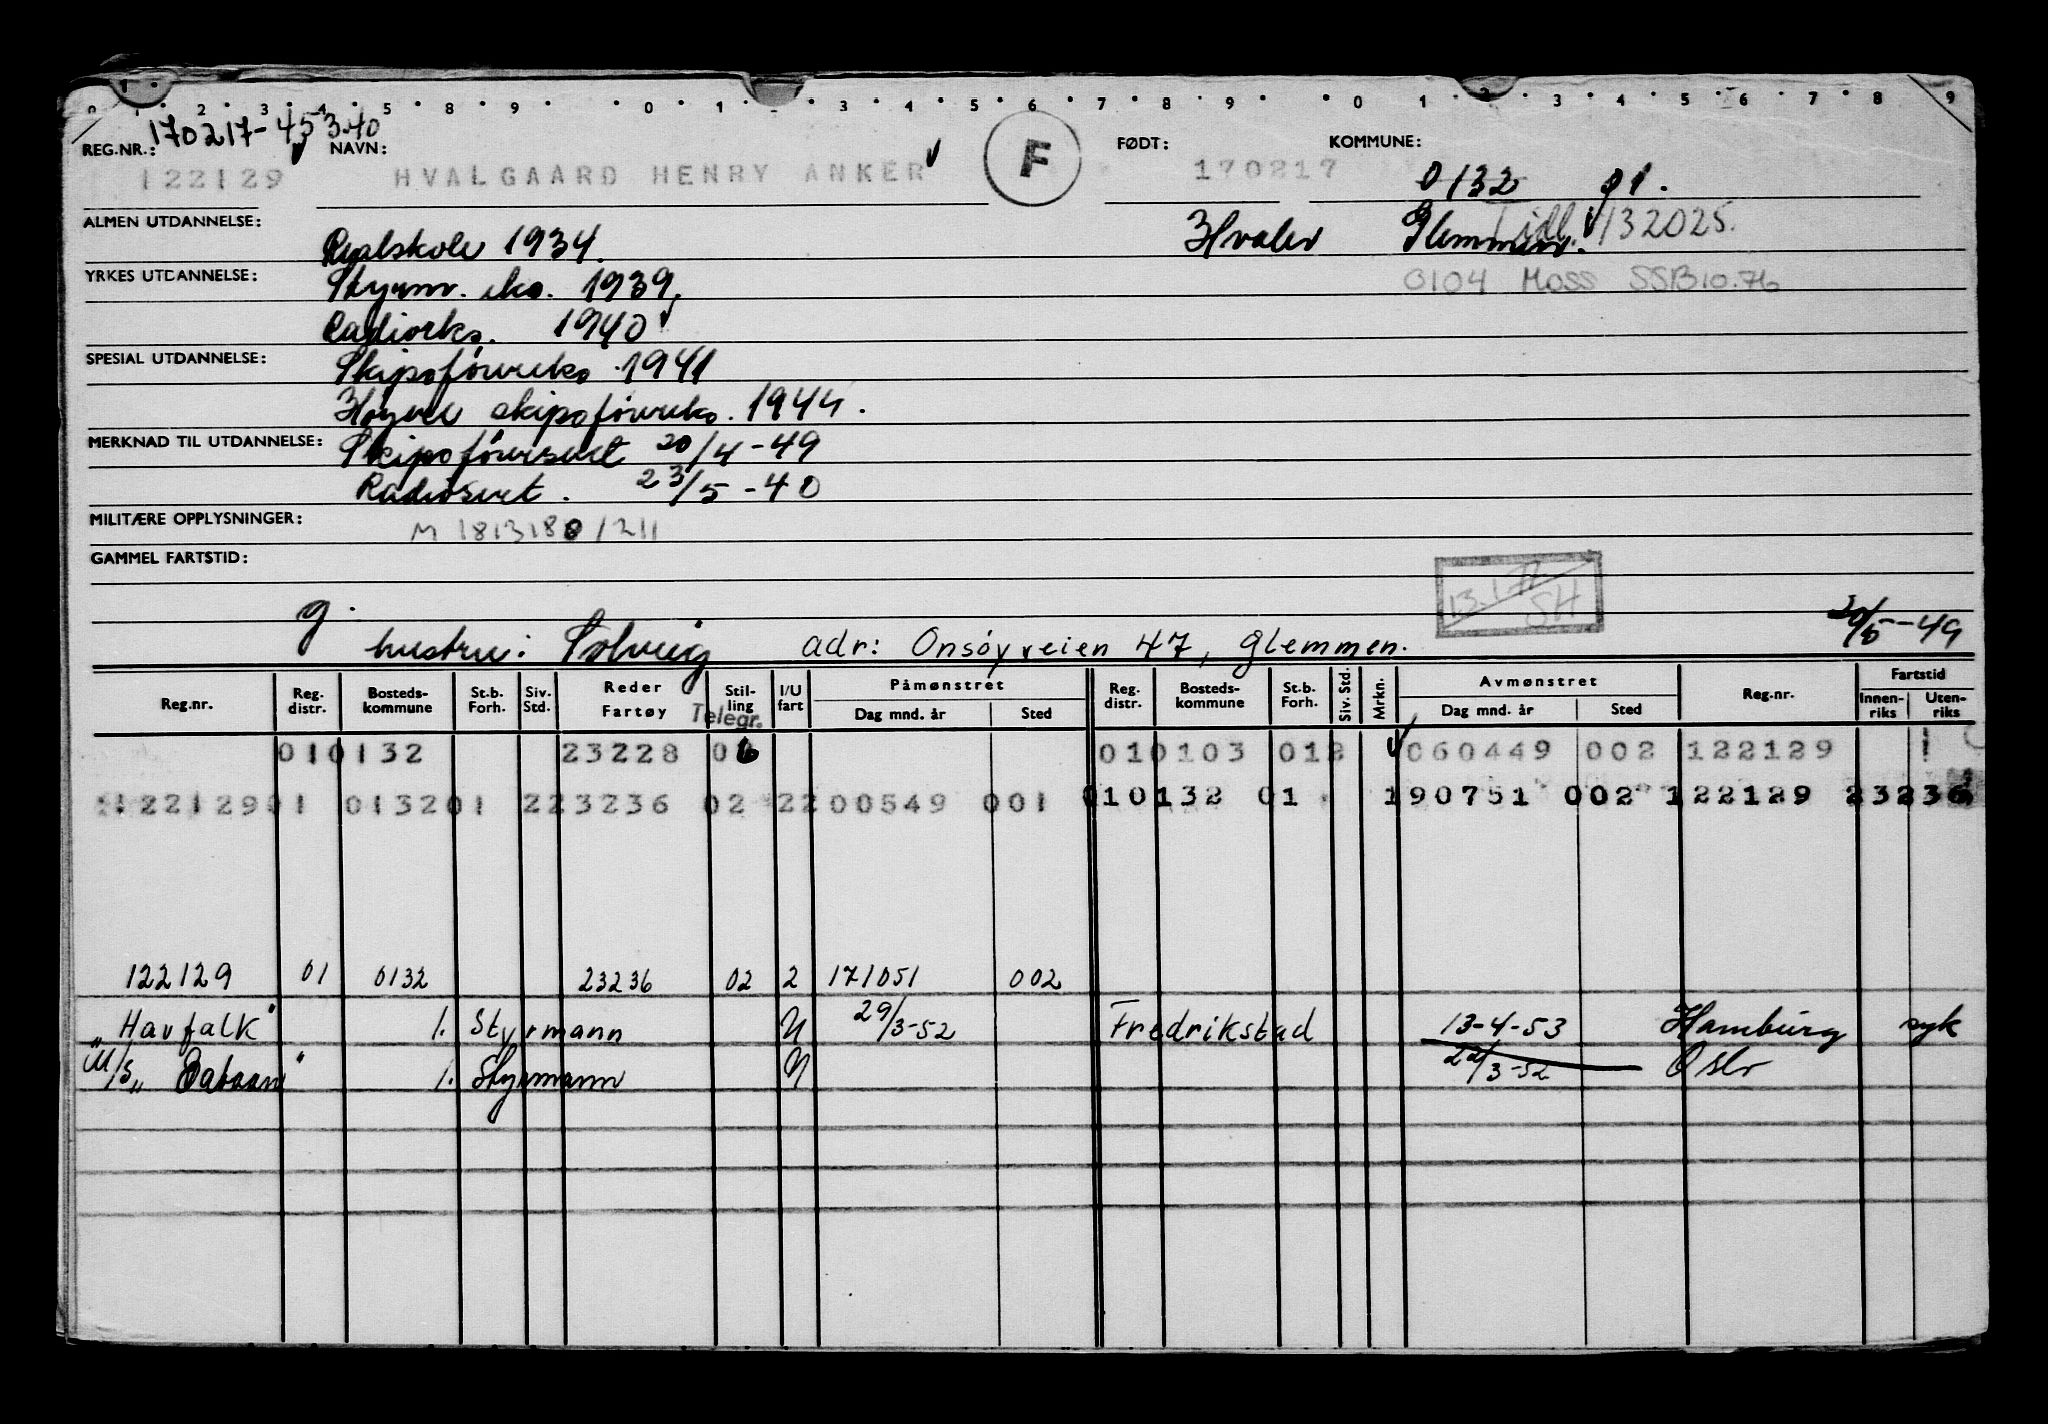 0 1 2 3 4 5 8 9 0 1 3 4 5 6 7 8 9 0 1 2 3 4 5 6 7 8 9
170217-45340
REG.NR.: NAVN: F FØDT: KOMMUNE:
122129 HVALGAARD HENRY ANKER 170217 0132 01.
ALMEN UTDANNELSE: Realskole 1934. Hvaler Glemmen. Tidl. 132025.
YRKES UTDANNELSE: Styrm. eks. 1939 0104 Moss SSB 10.76
Radioeks. 1940
SPESIAL UTDANNELSE: Skipsførereks. 1941
Høyere skipsførereks. 1944.
MERKNAD TIL UTDANNELSE: Skipsførersert 20/4-49
Radiosert. 23/5-40
MILITÆRE OPPLYSNINGER: M 1813180/211
GAMMEL FARTSTID:
13.1.77 SH
g.
hustru: Solveig adr: Onsøyveien 47, Glemmen. 20/5-49
Reg.nr. Reg. distr. Bosteds-kommune St.b. Forh. Siv. Std. Reder Fartøy Stil-ling I/U fart Påmønstret Dag mnd. år Sted Reg. distr. Bosteds-kommune St.b. Forh. Siv. Std. Mrkn. Avmønstret Dag mnd. år Sted Reg.nr. Fartstid Innen-riks Uten-riks
Telegr.
010132 23228 06 010103 012 060449 002 122129 1
122129 01 013201 223236 02 2200549 001 010132 01 190751 002 122129 23236
122129 01 0132 23236 02 2 171051 002
"Havfalk" 1. Styrmann U 29/3-52 Fredrikstad 13-4-53 Hamburg syk
M/S "Bataan" 1. Styrmann U 22/3-52 Oslo